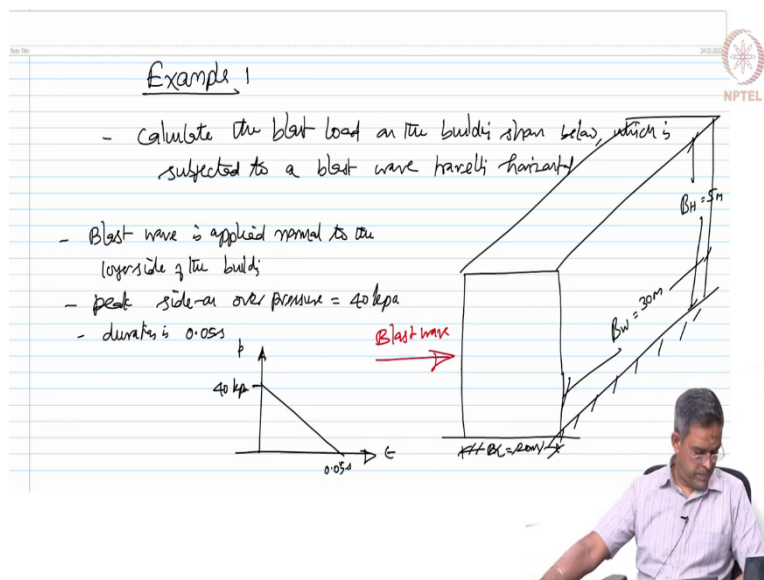 Note Title
24-02-202
NPTEL
Example 1
- Calculate the blast load on the buildi shown below, which is
subjected to a blast wave travelli horizontal
- Blast wave is applied normal to the
longerside of the buildi
- peak side-on over pressure = 40 kpa
- duration is 0.05s
p
40 kpa
0.05s
t
Blast wave
BH = 5m
BW = 30m
BL = 20m